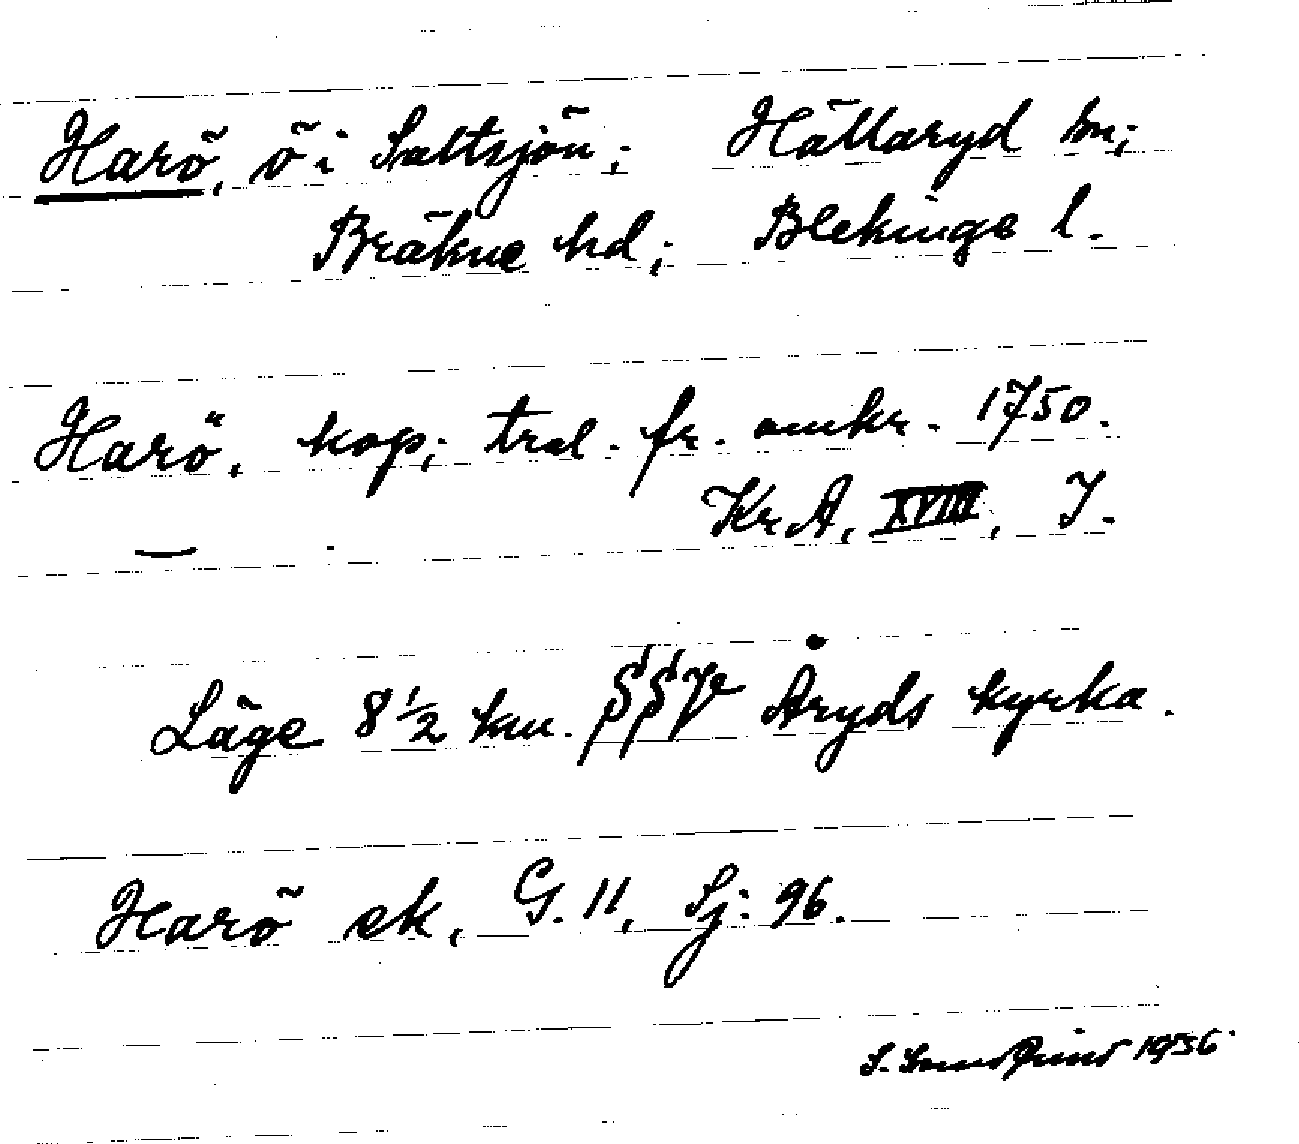 Harö, ö i Saltsjön; Hällaryd sn;
Bräkne hd; Blekinge l.
Harö, kop; tral. fr. omkr. 1750.
Kr.A, XVIII, 7.
Läge 8 1/2 km. SSV Åryds kyrka.
Harö ek, G. 11, Sj: 96.
S. 1956